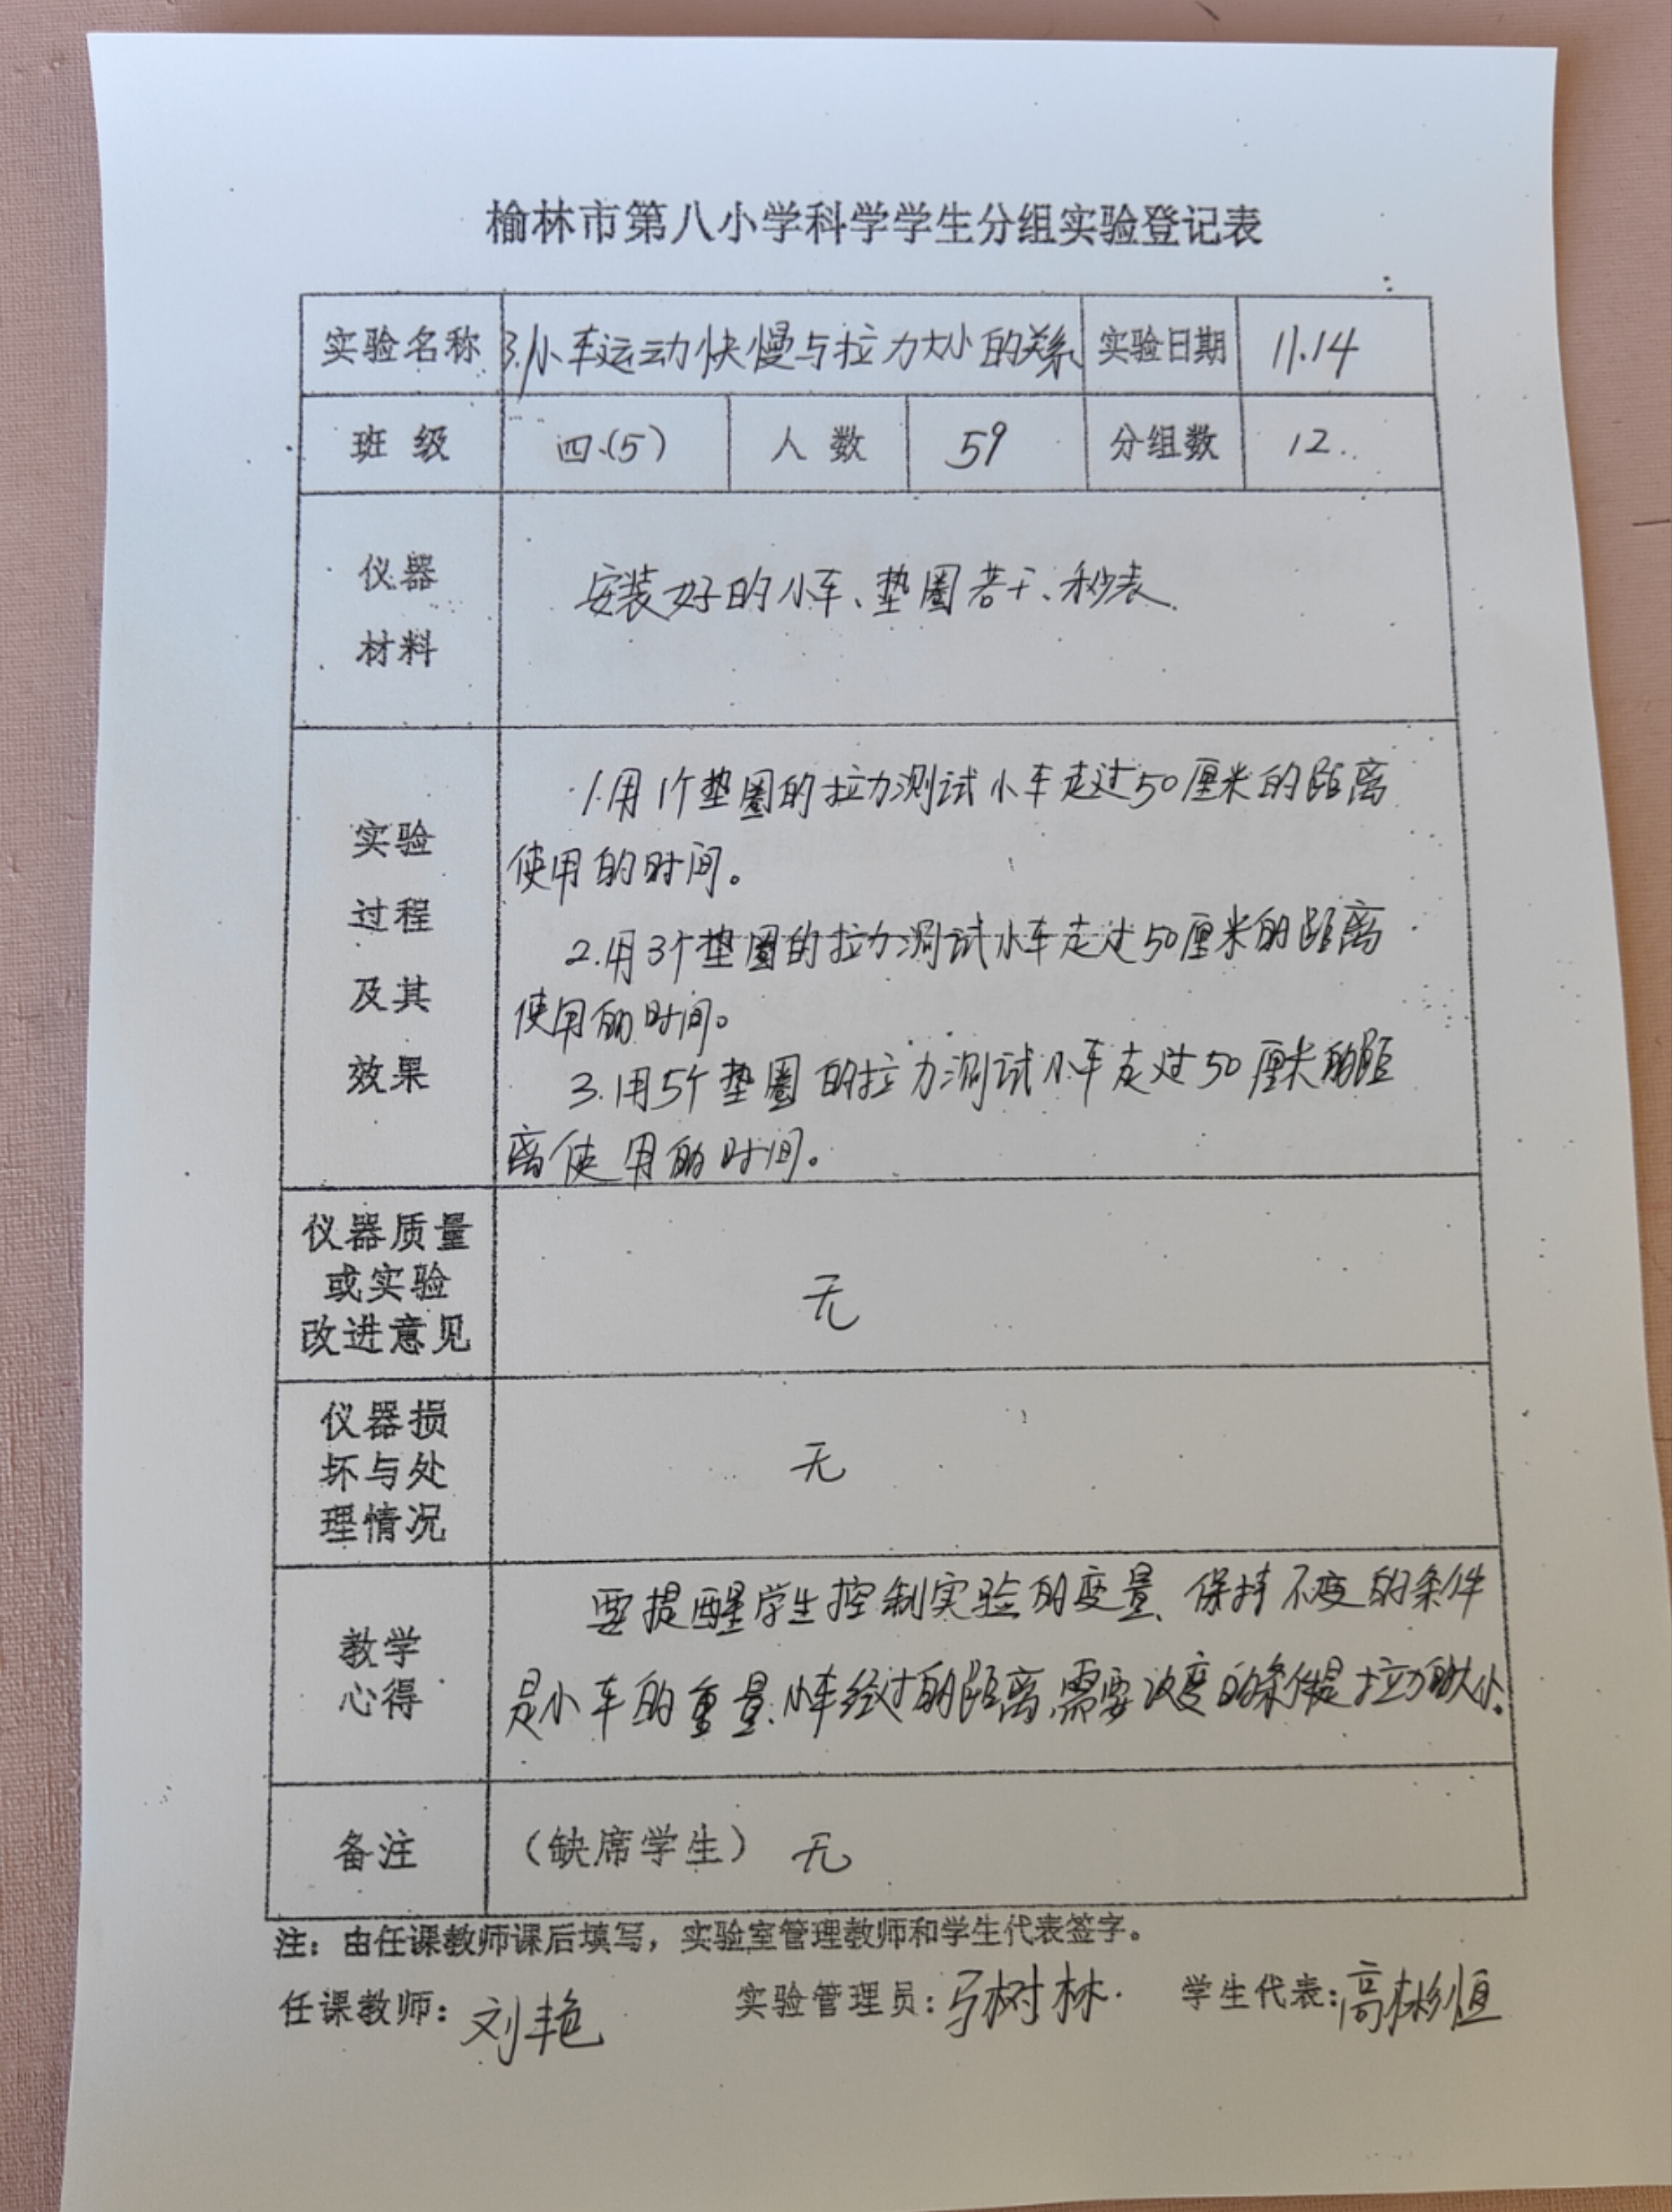 榆林市第八小学科学学生分组实验登记表
实验名称 3.小车运动快慢与拉力大小的关系 实验日期 11.14
班级 四.(5) 人数 59 分组数 12..
仪器
材料
安装好的小车、垫圈若干、秒表.
实验
过程
及其
效果
1.用1个垫圈的拉力测试小车走过50厘米的距离
使用的时间。
2.用3个垫圈的拉力测试小车走过50厘米的距离
使用的时间。
3.用5个垫圈的拉力测试小车走过50厘米的距
离使用的时间。
仪器质量
或实验
改进意见
无
仪器损
坏与处
理情况
无
教学
心得
要提醒学生控制实验的变量、保持不变的条件
是小车的重量、小车经过的距离,需要改变的条件是拉力的大小。
备注 (缺席学生) 无
注：由任课教师课后填写，实验室管理教师和学生代表签字。
任课教师：刘艳 实验管理员：马树林. 学生代表：高彬恒